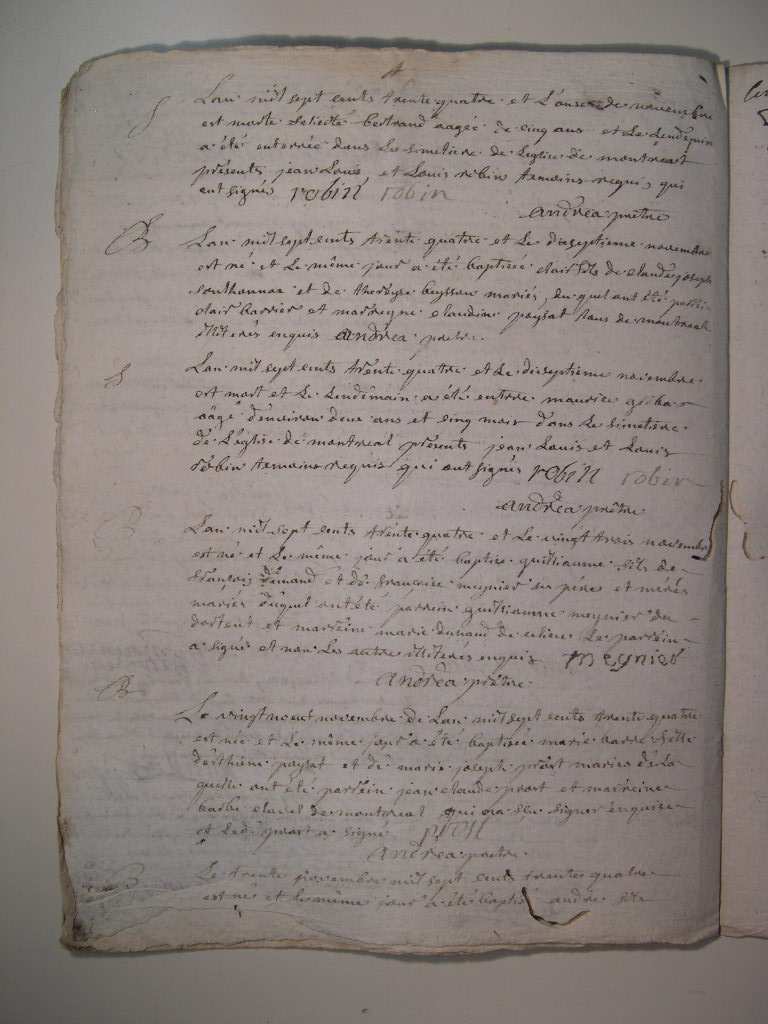 S Lan mil sept cents trente quatre et L'onse de novembre
est morte felicité bertrand aagée de cinq ans et Le Lendemin
a été enterrée dans Le simetiere de Leglise de montreal
présents jean Louis, et Louis robin temoins requis qui
ont signés robin robin
andréa prêtre
B Lan mil sept cents trente quatre et Le diseptieme novembre
est né et Le même jour a été baptisée clair fils de claude joseph
et de therese beysson mariés, duquel ont été parrin
clair barrier et marreyne claudine paysat tous de montreal
illiterés enquis andréa pretre.
S Lan mil sept cents trente quatre et Le diseptieme novembre
est mort et Le Lendemain a été enterre maurice
aâgé denviron deux ans et cinq mois dans Le simetiere
de L'églige de montreal présents jean Louis et Louis
robin temoins requis qui ont signés robin robin
andréa prêtre
B Lan mil sept cents trente quatre et Le vingt trois novembre
est né et Le même jour a été baptise guilliaume fils de
françois et de françoise meynier ses péres et mérés
mariés duquel ont été parrein guilliaume meynier du
dortent et marreine marie dunand de Le parrein
a signé et non Les autre illiterés enquis meynier
andréa prêtre.
B Le vingt noeuf novembre de Lan mil sept cents trente quatre
est née et Le même jour a été baptisée marie barbe fille
desthiene paysat et de marie joseph prost mariés dela
quelle ont été parrein jean claude prost et marreine
barbe clavel de montreal qui na sçu signer enquise
et Ledit prost a signé prost
andréa pretre.
B Le trente novembre mil sept cents trentes quatre
est né et Le même jour a été baptisé andre fils